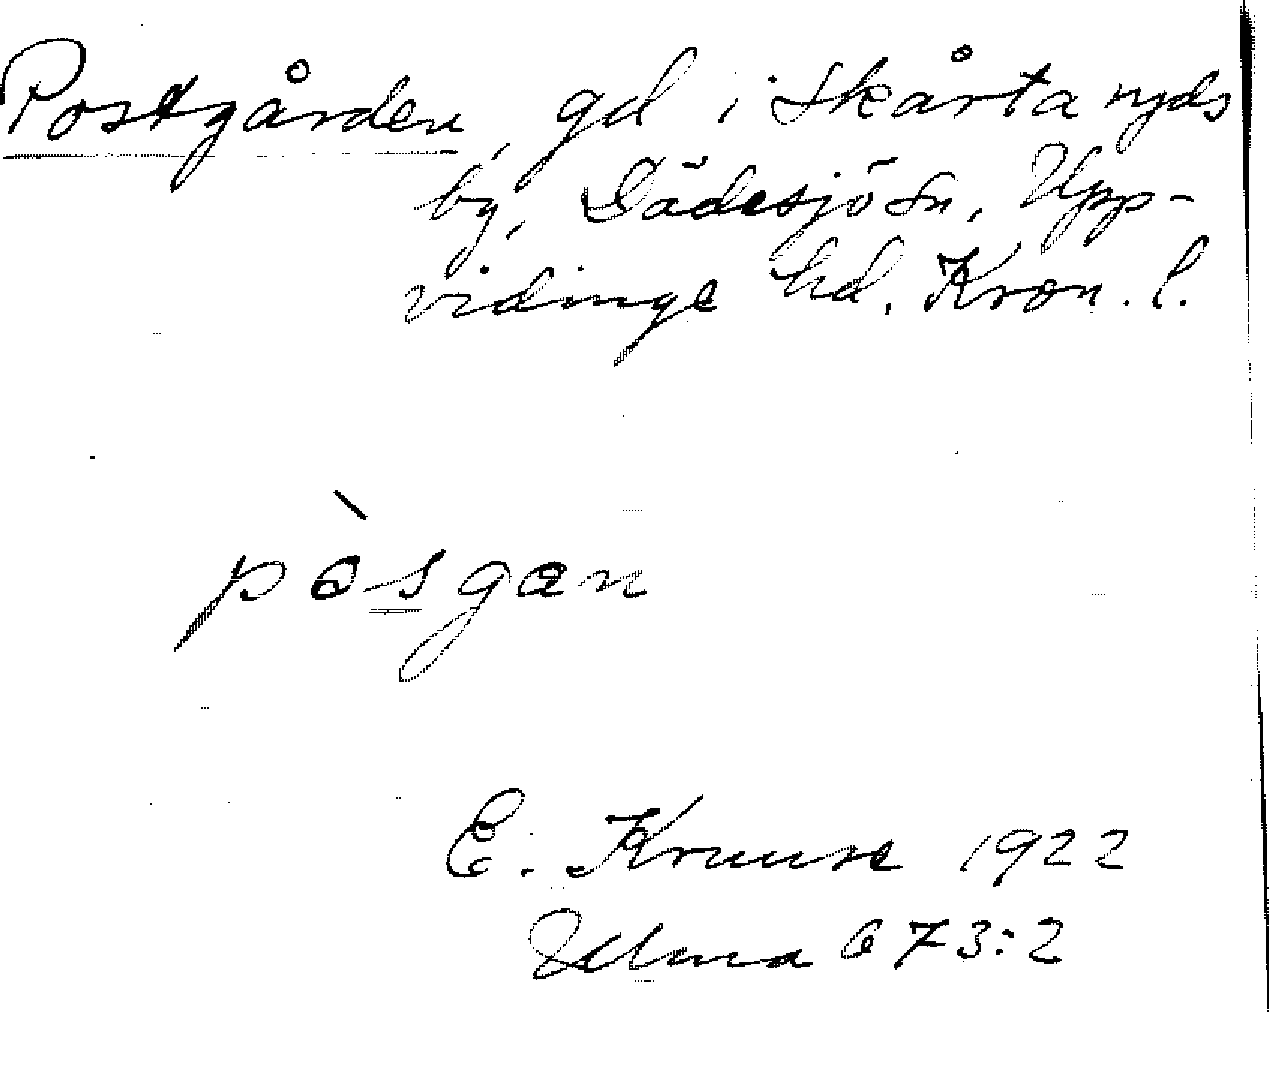 Postgården, gd i Skårtaryds
by, Dädesjö sn, Upp-
vidinge hd, Kron. l.
pòsgan
E. Kruuse 1922
Ulma 673:2